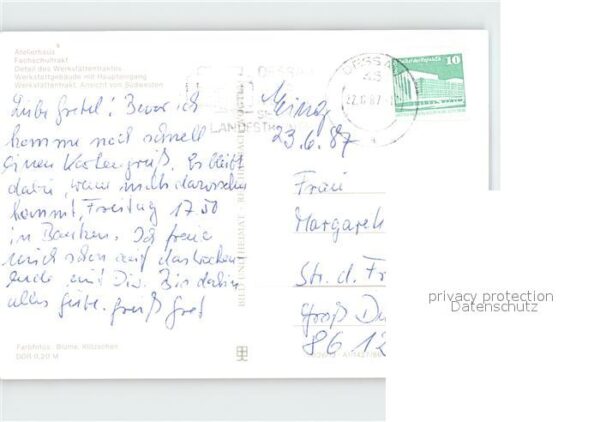 Atelierhaus
Fachschultrakt
Detail des Werkstättentraktes
Werkstattgebäude mit Haupteingang
Werkstättentrakt, Ansicht von Südwesten
Liebe Gretel! Bevor ich
komme noch schnell
einen Kartengruß. Es bleibt
dabei, wenn nichts dazwischen
kommt, Freitag 17.50
in Bautzen. Ich freue
mich schon auf das Wochen-
ende mit Dir. Bis dahin
alles Gute. Gruß
Farbfotos: Blume, Klitzschen
DDR 0,20 M
BILD UND HEIMAT REICHENBACH
DESSAU
LANDESTH
DESSAU
45
22.6.87
10
23.6.87
Frau
Margareth
Str. d. Fr
Groß Du
8612
privacy protection
Datenschutz